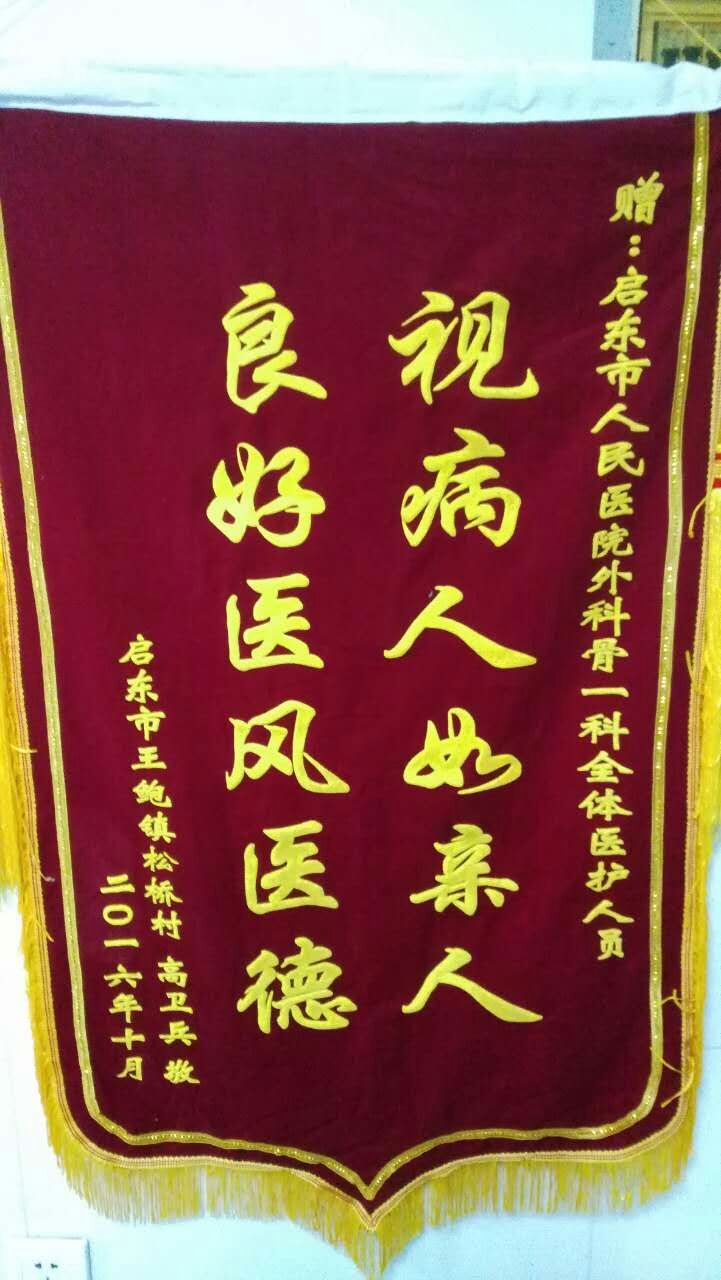 赠：启东市人民医院外科骨一科全体医护人员
视病人如亲人
良好医风医德
启东市王鲍镇松桥村 高卫兵 敬
二〇一六年十月